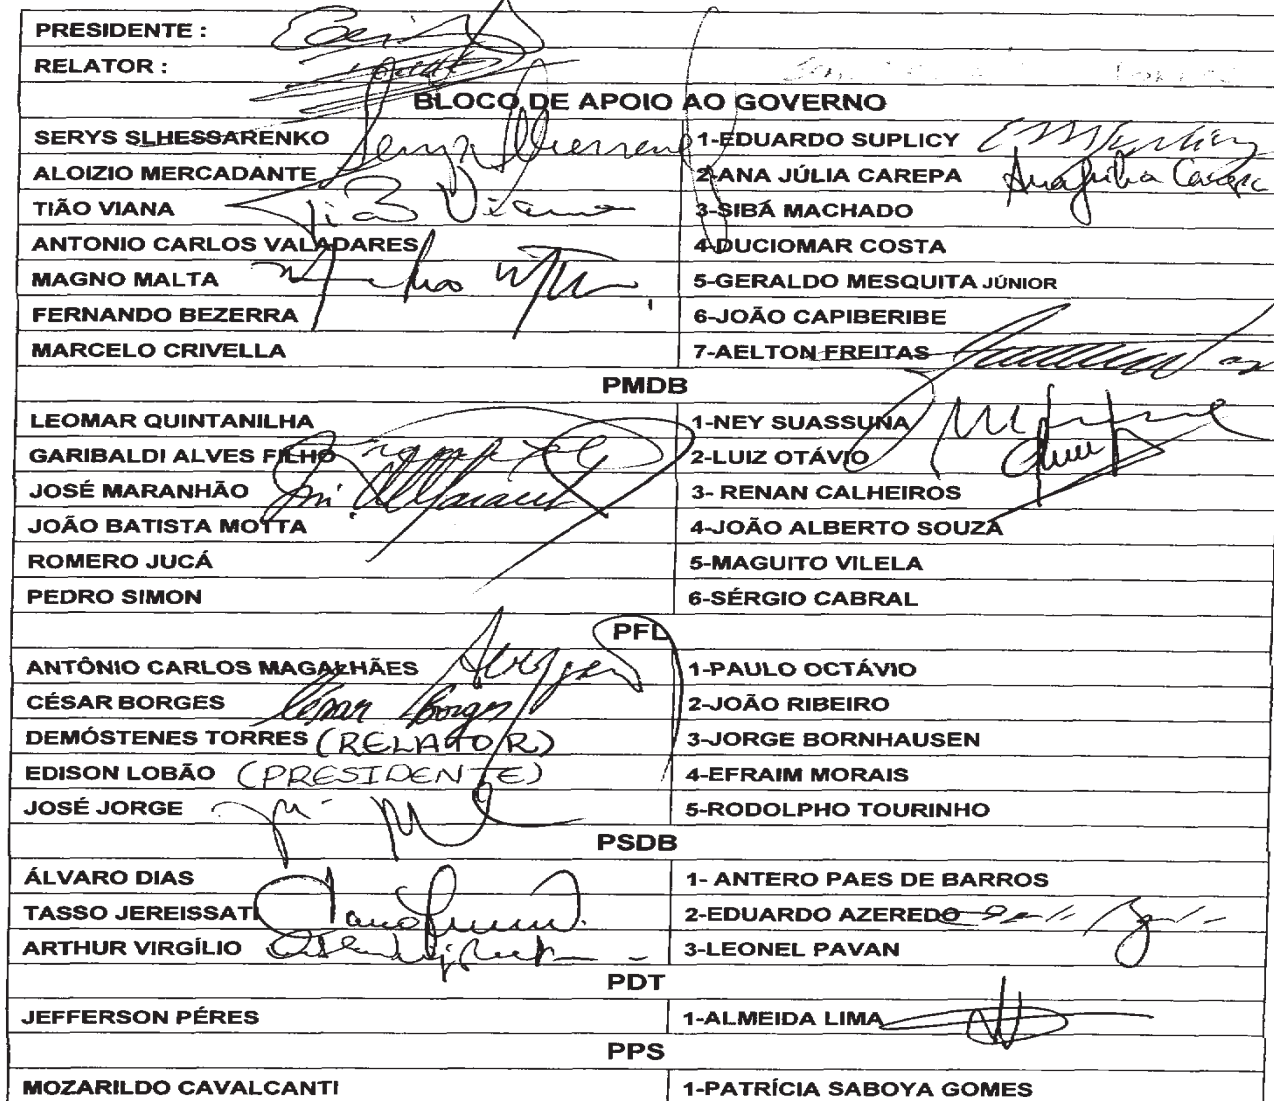 PRESIDENTE :
RELATOR :
BLOCO DE APOIO AO GOVERNO
SERYS SLHESSARENKO 1-EDUARDO SUPLICY
ALOIZIO MERCADANTE 2-ANA JÚLIA CAREPA Ana Júlia Carepa
TIÃO VIANA Tião Viana 3-SIBÁ MACHADO
ANTONIO CARLOS VALADARES 4-DUCIOMAR COSTA
MAGNO MALTA 5-GERALDO MESQUITA JÚNIOR
FERNANDO BEZERRA 6-JOÃO CAPIBERIBE
MARCELO CRIVELLA 7-AELTON FREITAS
PMDB
LEOMAR QUINTANILHA 1-NEY SUASSUNA
GARIBALDI ALVES FILHO 2-LUIZ OTÁVIO
JOSÉ MARANHÃO 3- RENAN CALHEIROS
JOÃO BATISTA MOTTA 4-JOÃO ALBERTO SOUZA
ROMERO JUCÁ 5-MAGUITO VILELA
PEDRO SIMON 6-SÉRGIO CABRAL
PFL
ANTÔNIO CARLOS MAGALHÃES 1-PAULO OCTÁVIO
CÉSAR BORGES César Borges 2-JOÃO RIBEIRO
DEMÓSTENES TORRES (RELATOR) 3-JORGE BORNHAUSEN
EDISON LOBÃO (PRESIDENTE) 4-EFRAIM MORAIS
JOSÉ JORGE 5-RODOLPHO TOURINHO
PSDB
ÁLVARO DIAS 1- ANTERO PAES DE BARROS
TASSO JEREISSATI 2-EDUARDO AZEREDO
ARTHUR VIRGÍLIO 3-LEONEL PAVAN
PDT
JEFFERSON PÉRES 1-ALMEIDA LIMA
PPS
MOZARILDO CAVALCANTI 1-PATRÍCIA SABOYA GOMES